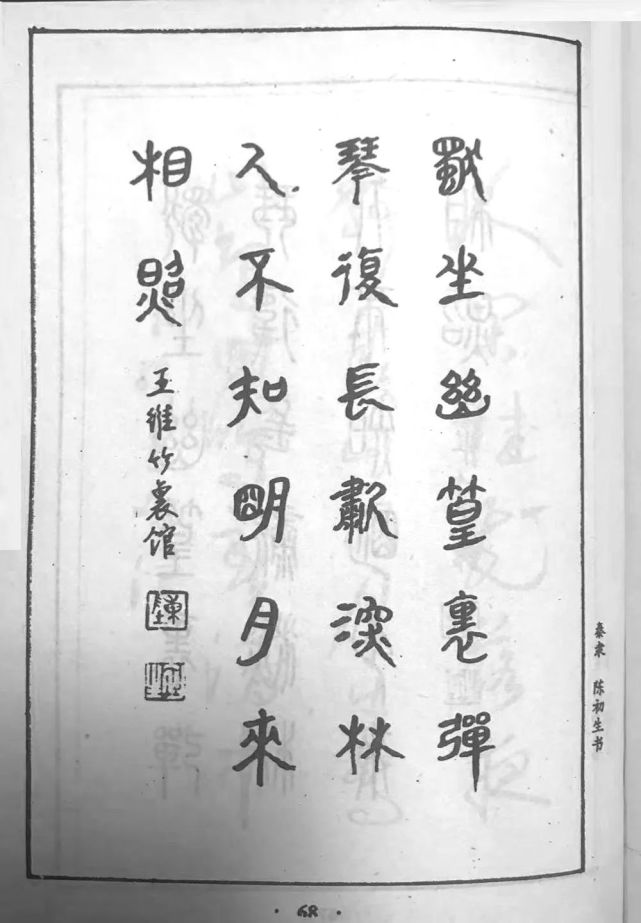 獨坐幽篁裏彈
琴復長歗深林
人不知朙月來
相照
王維竹裏馆
秦隶 陈初生书
· 68 ·